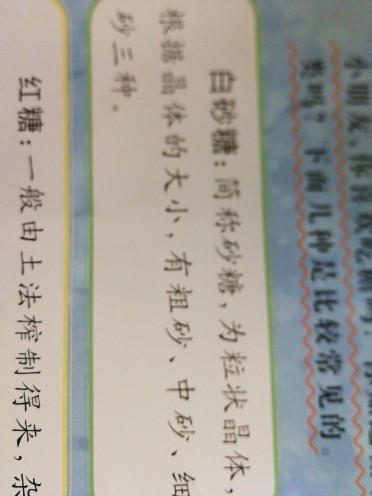 小朋友、你喜欢吃糖吗？你知道
类吗？下面几种是比较常见的。
白砂糖：简称砂糖，为粒状晶体，
根据晶体的大小，有粗砂、中砂、细
砂三种。
红糖：一般由土法榨制得来，杂